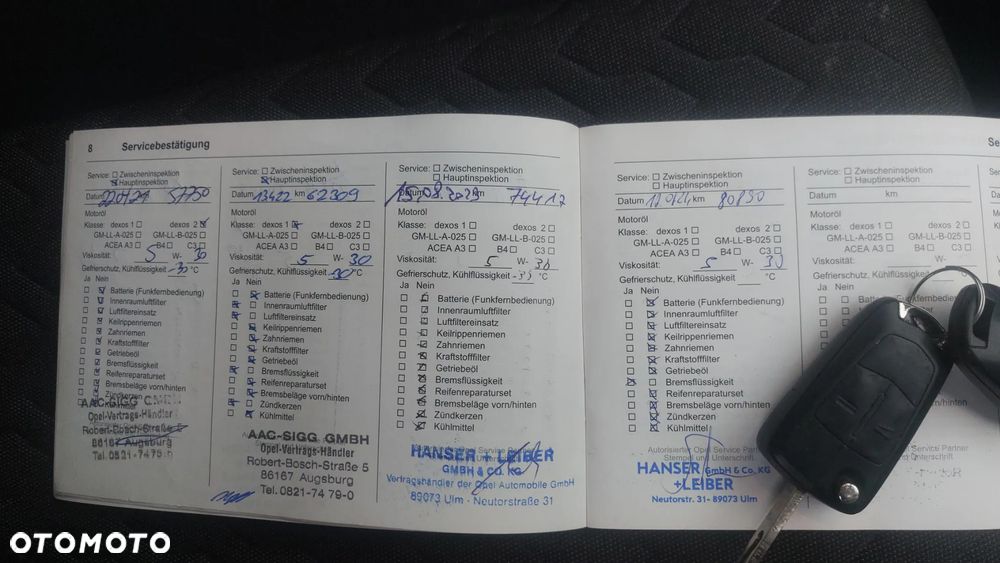 8 Servicebestätigung
Service: Zwischeninspektion
Hauptinspektion
Datum 57750
Motoröl
Klasse: dexos 1 dexos 2
GM-LL-A-025 GM-LL-B-025
ACEA A3 B4 C3
Viskosität: 5 W- 30
Gefrierschutz, Kühlflüssigkeit -30 °C
Ja Nein
Batterie (Funkfernbedienung)
Innenraumluftfilter
Luftfiltereinsatz
Keilrippenriemen
Zahnriemen
Kraftstofffilter
Getriebeöl
Bremsflüssigkeit
Reifenreparaturset
Bremsbeläge vorn/hinten
Zündkerzen
AAC-SIGG GMBH
Opel-Vertrags-Händler
Robert-Bosch-Straße 5
86167 Augsburg
Tel. 0821-74 79-0
Service: Zwischeninspektion
Hauptinspektion
Datum 13422 km 62309
Motoröl
Klasse: dexos 1 dexos 2
GM-LL-A-025 GM-LL-B-025
ACEA A3 B4 C3
Viskosität: 5 W- 30
Gefrierschutz, Kühlflüssigkeit -30 °C
Ja Nein
Batterie (Funkfernbedienung)
Innenraumluftfilter
Luftfiltereinsatz
Keilrippenriemen
Zahnriemen
Kraftstofffilter
Getriebeöl
Bremsflüssigkeit
Reifenreparaturset
Bremsbeläge vorn/hinten
Zündkerzen
Kühlmittel
AAC-SIGG GMBH
Opel-Vertrags-Händler
Robert-Bosch-Straße 5
86167 Augsburg
Tel. 0821-74 79-0
Service: Zwischeninspektion
Hauptinspektion
Datum 15.08.2023 km 74417
Motoröl
Klasse: dexos 1 dexos 2
GM-LL-A-025 GM-LL-B-025
ACEA A3 B4 C3
Viskosität: 5 W- 30
Gefrierschutz, Kühlflüssigkeit -35 °C
Ja Nein
Batterie (Funkfernbedienung)
Innenraumluftfilter
Luftfiltereinsatz
Keilrippenriemen
Zahnriemen
Kraftstofffilter
Getriebeöl
Bremsflüssigkeit
Reifenreparaturset
Bremsbeläge vorn/hinten
Zündkerzen
Kühlmittel
HANSER + LEIBER
GMBH & CO. KG
Vertragshändler der Opel Automobile GmbH
89073 Ulm - Neutorstraße 31
Se
Service: Zwischeninspektion
Hauptinspektion
Datum km 80890
Motoröl
Klasse: dexos 1 dexos 2
GM-LL-A-025 GM-LL-B-025
ACEA A3 B4 C3
Viskosität: 5 W- 30
Gefrierschutz, Kühlflüssigkeit °C
Ja Nein
Batterie (Funkfernbedienung)
Innenraumluftfilter
Luftfiltereinsatz
Keilrippenriemen
Zahnriemen
Kraftstofffilter
Getriebeöl
Bremsflüssigkeit
Reifenreparaturset
Bremsbeläge vorn/hinten
Zündkerzen
Kühlmittel
Autorisierter Opel Service Partner
Stempel und Unterschrift
HANSER GmbH & Co. KG
+LEIBER
Neutorstr. 31- 89073 Ulm
Service: Zwischeninspektion
Hauptinspektion
Datum km
Motoröl
Klasse: dexos 1 dexos 2
GM-LL-A-025 GM-LL-B-025
ACEA A3 B4 C3
Viskosität: W-
Gefrierschutz, Kühlflüssigkeit
Ja Nein
Service Partner
OTOMOTO